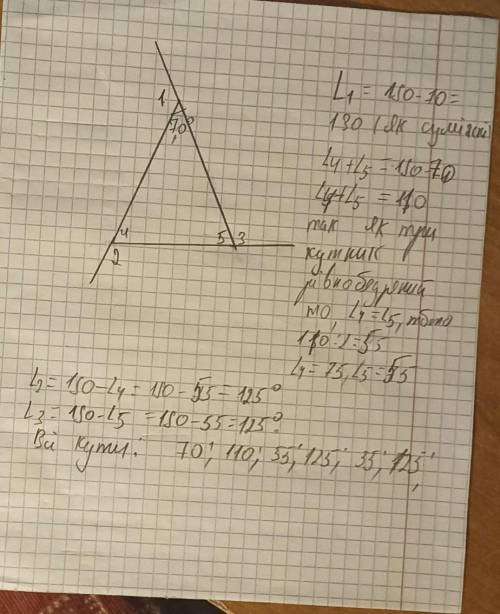 1
70°
4
5 3
2
L1 = 180-70=
130 (як суміжні
L4+L5=180-70
L4+L5 = 110
так як три
кутник
рівнобедрений
то, L4=L5, тобто
110:2=55
L4=75, L5=55
L2= 180-L4= 180-55=125°
L3= 180-L5 =180-55=125°.
Всі кути: 70; 110; 55; 125; 55; 125;